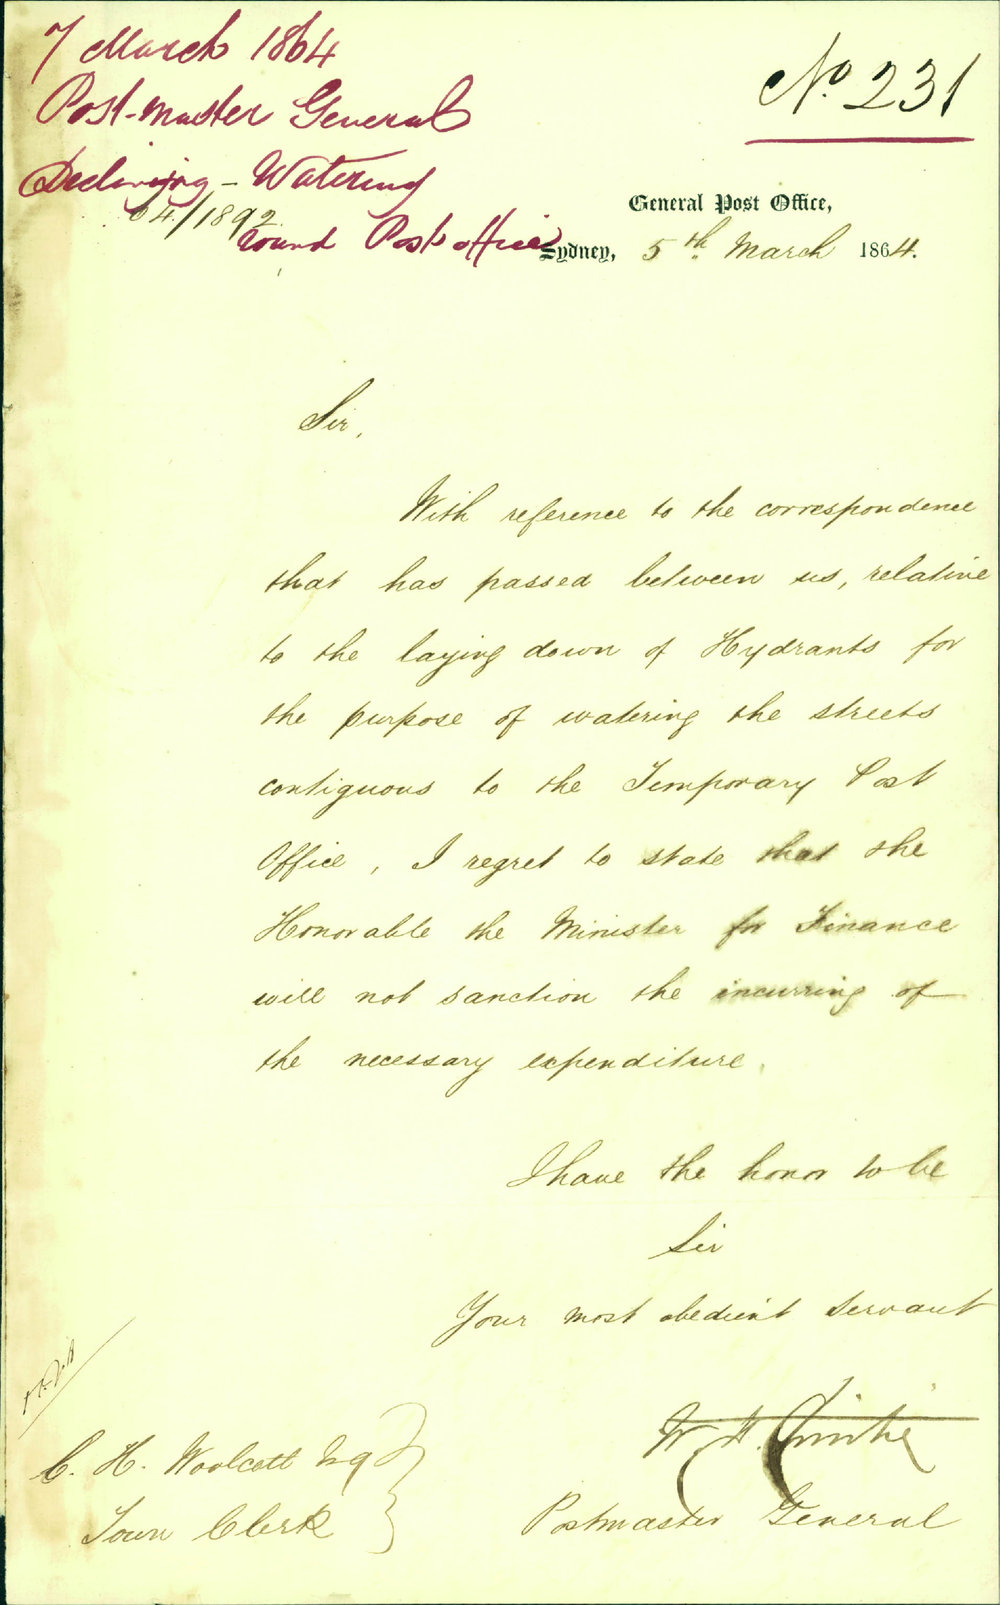 7 March 1864
Post-Master General
Declining - Watering
round Post office
64/1892
No. 231
General Post Office,
Sydney, 5th March 1864.
Sir,
With reference to the correspondence
that has passed between us, relative
to the laying down of Hydrants for
the purpose of watering the streets
contiguous to the Temporary Post
Office, I regret to state that the
Honorable the Minister for Finance
will not sanction the incurring of
the necessary expenditure.
I have the honor to be
Sir
Your most obedient servant
W. H. Christie
Postmaster General
C. H. Woolcott Esq
Town Clerk